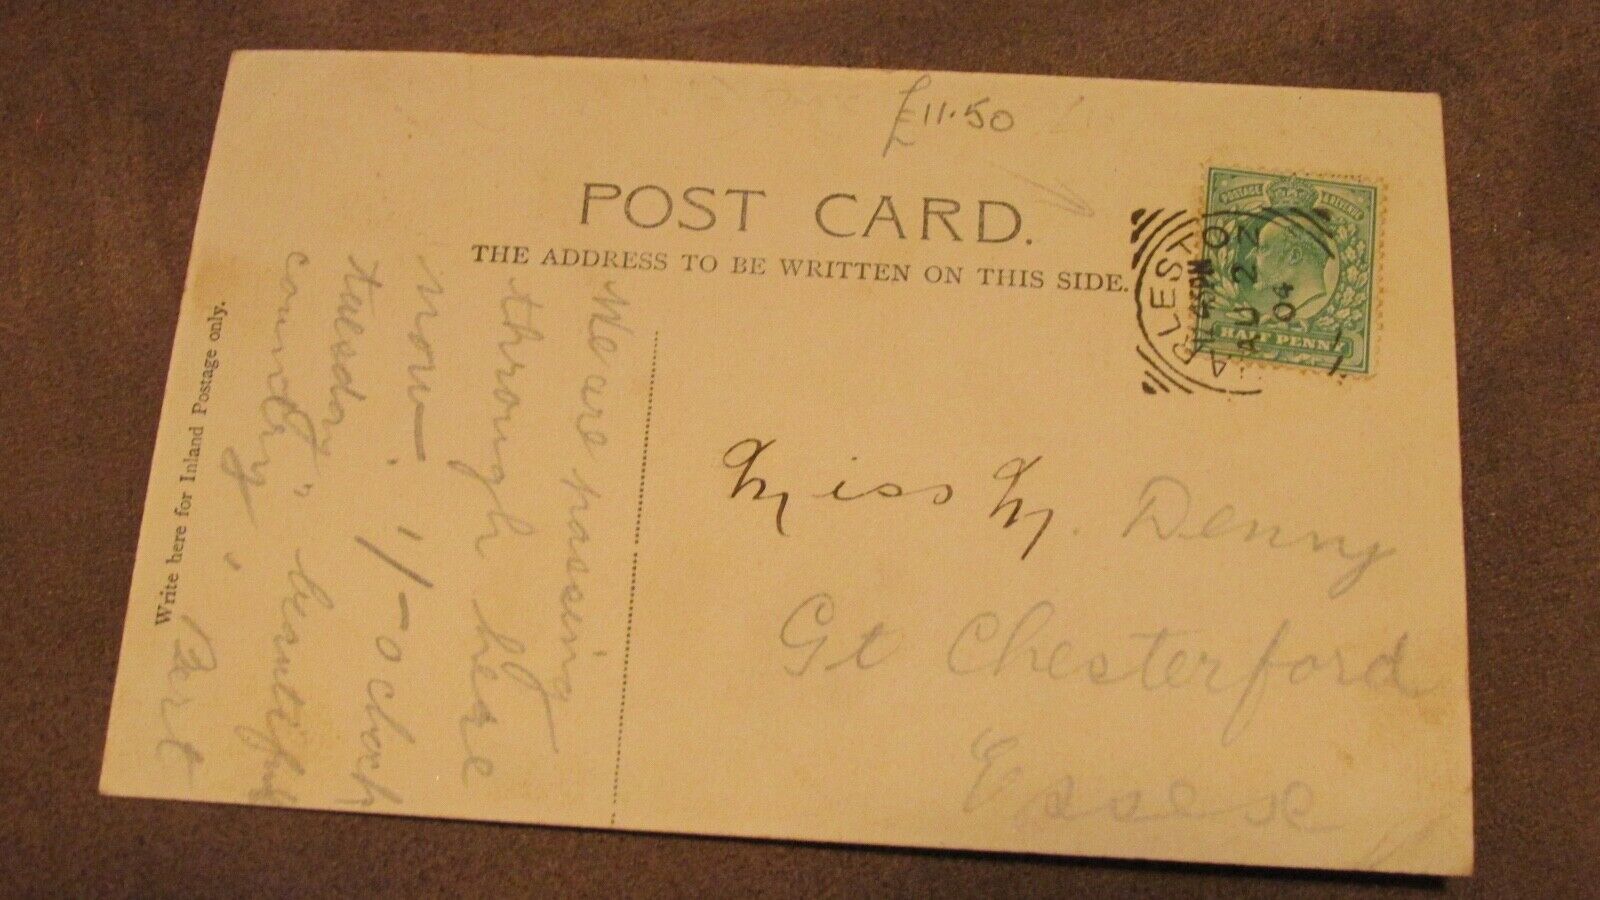 £11.50
POST CARD.
THE ADDRESS TO BE WRITTEN ON THIS SIDE.
Write here for Inland Postage only.
We are passing
through here
now — 1/-o clock
tuesday " beautiful
country " .
Bert
POSTAGE & REVENUE
HALF PENNY
ARLESTO
45PM
AU 2
04
Miss M. Denny
Gt Chesterford
Essex